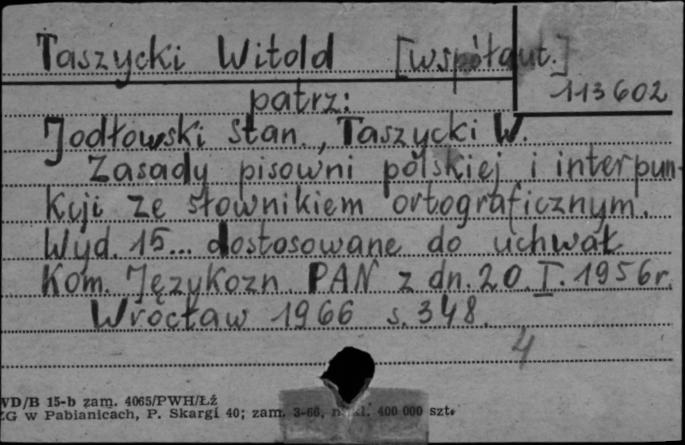 Taszycki Witold [współaut.]
113602
patrz:
Jodłowski Stan., Taszycki W.
Zasady pisowni polskiej i interpun-
kcji ze słownikiem ortograficznym.
Wyd. 15... dostosowane do uchwał
Kom. Językozn. PAN z dn. 20.I.1956r.
Wrocław 1966 s. 348.
4
WD/B 15-b zam. 4065/PWH/Łź
ZG w Pabianicach, P. Skargi 40; zam. 3-66, 400 000 szt.